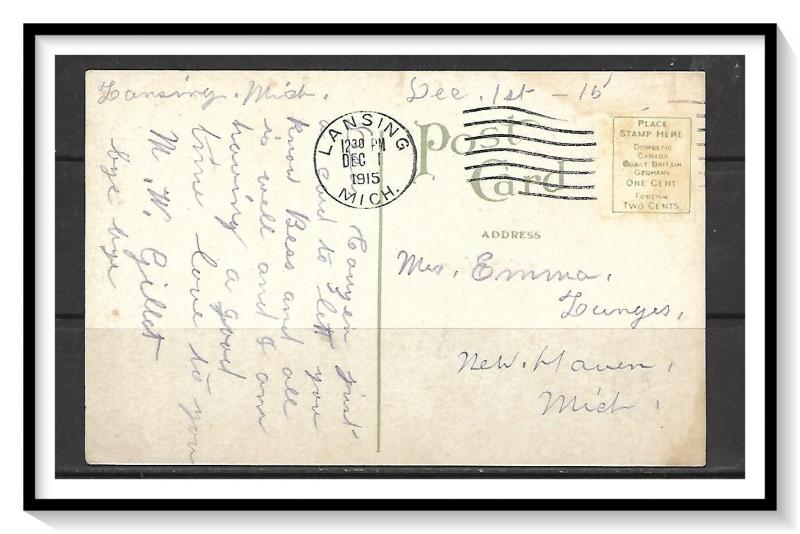 Lansing. Mich.
Dec. 1st - 15
LANSING
12 30 PM
DEC 1
1915
MICH.
Post
Card
PLACE
STAMP HERE
DOMESTIC
CANADA
GREAT BRITAIN
GERMANY
ONE CENT
FOREIGN
TWO CENTS
ADDRESS
Mrs. Emma.
New. Haven.
Mich.
just
a card to lett you
know Bess and all
is well and I am
having a good
time love to you
M. W. Gillet
bye bye